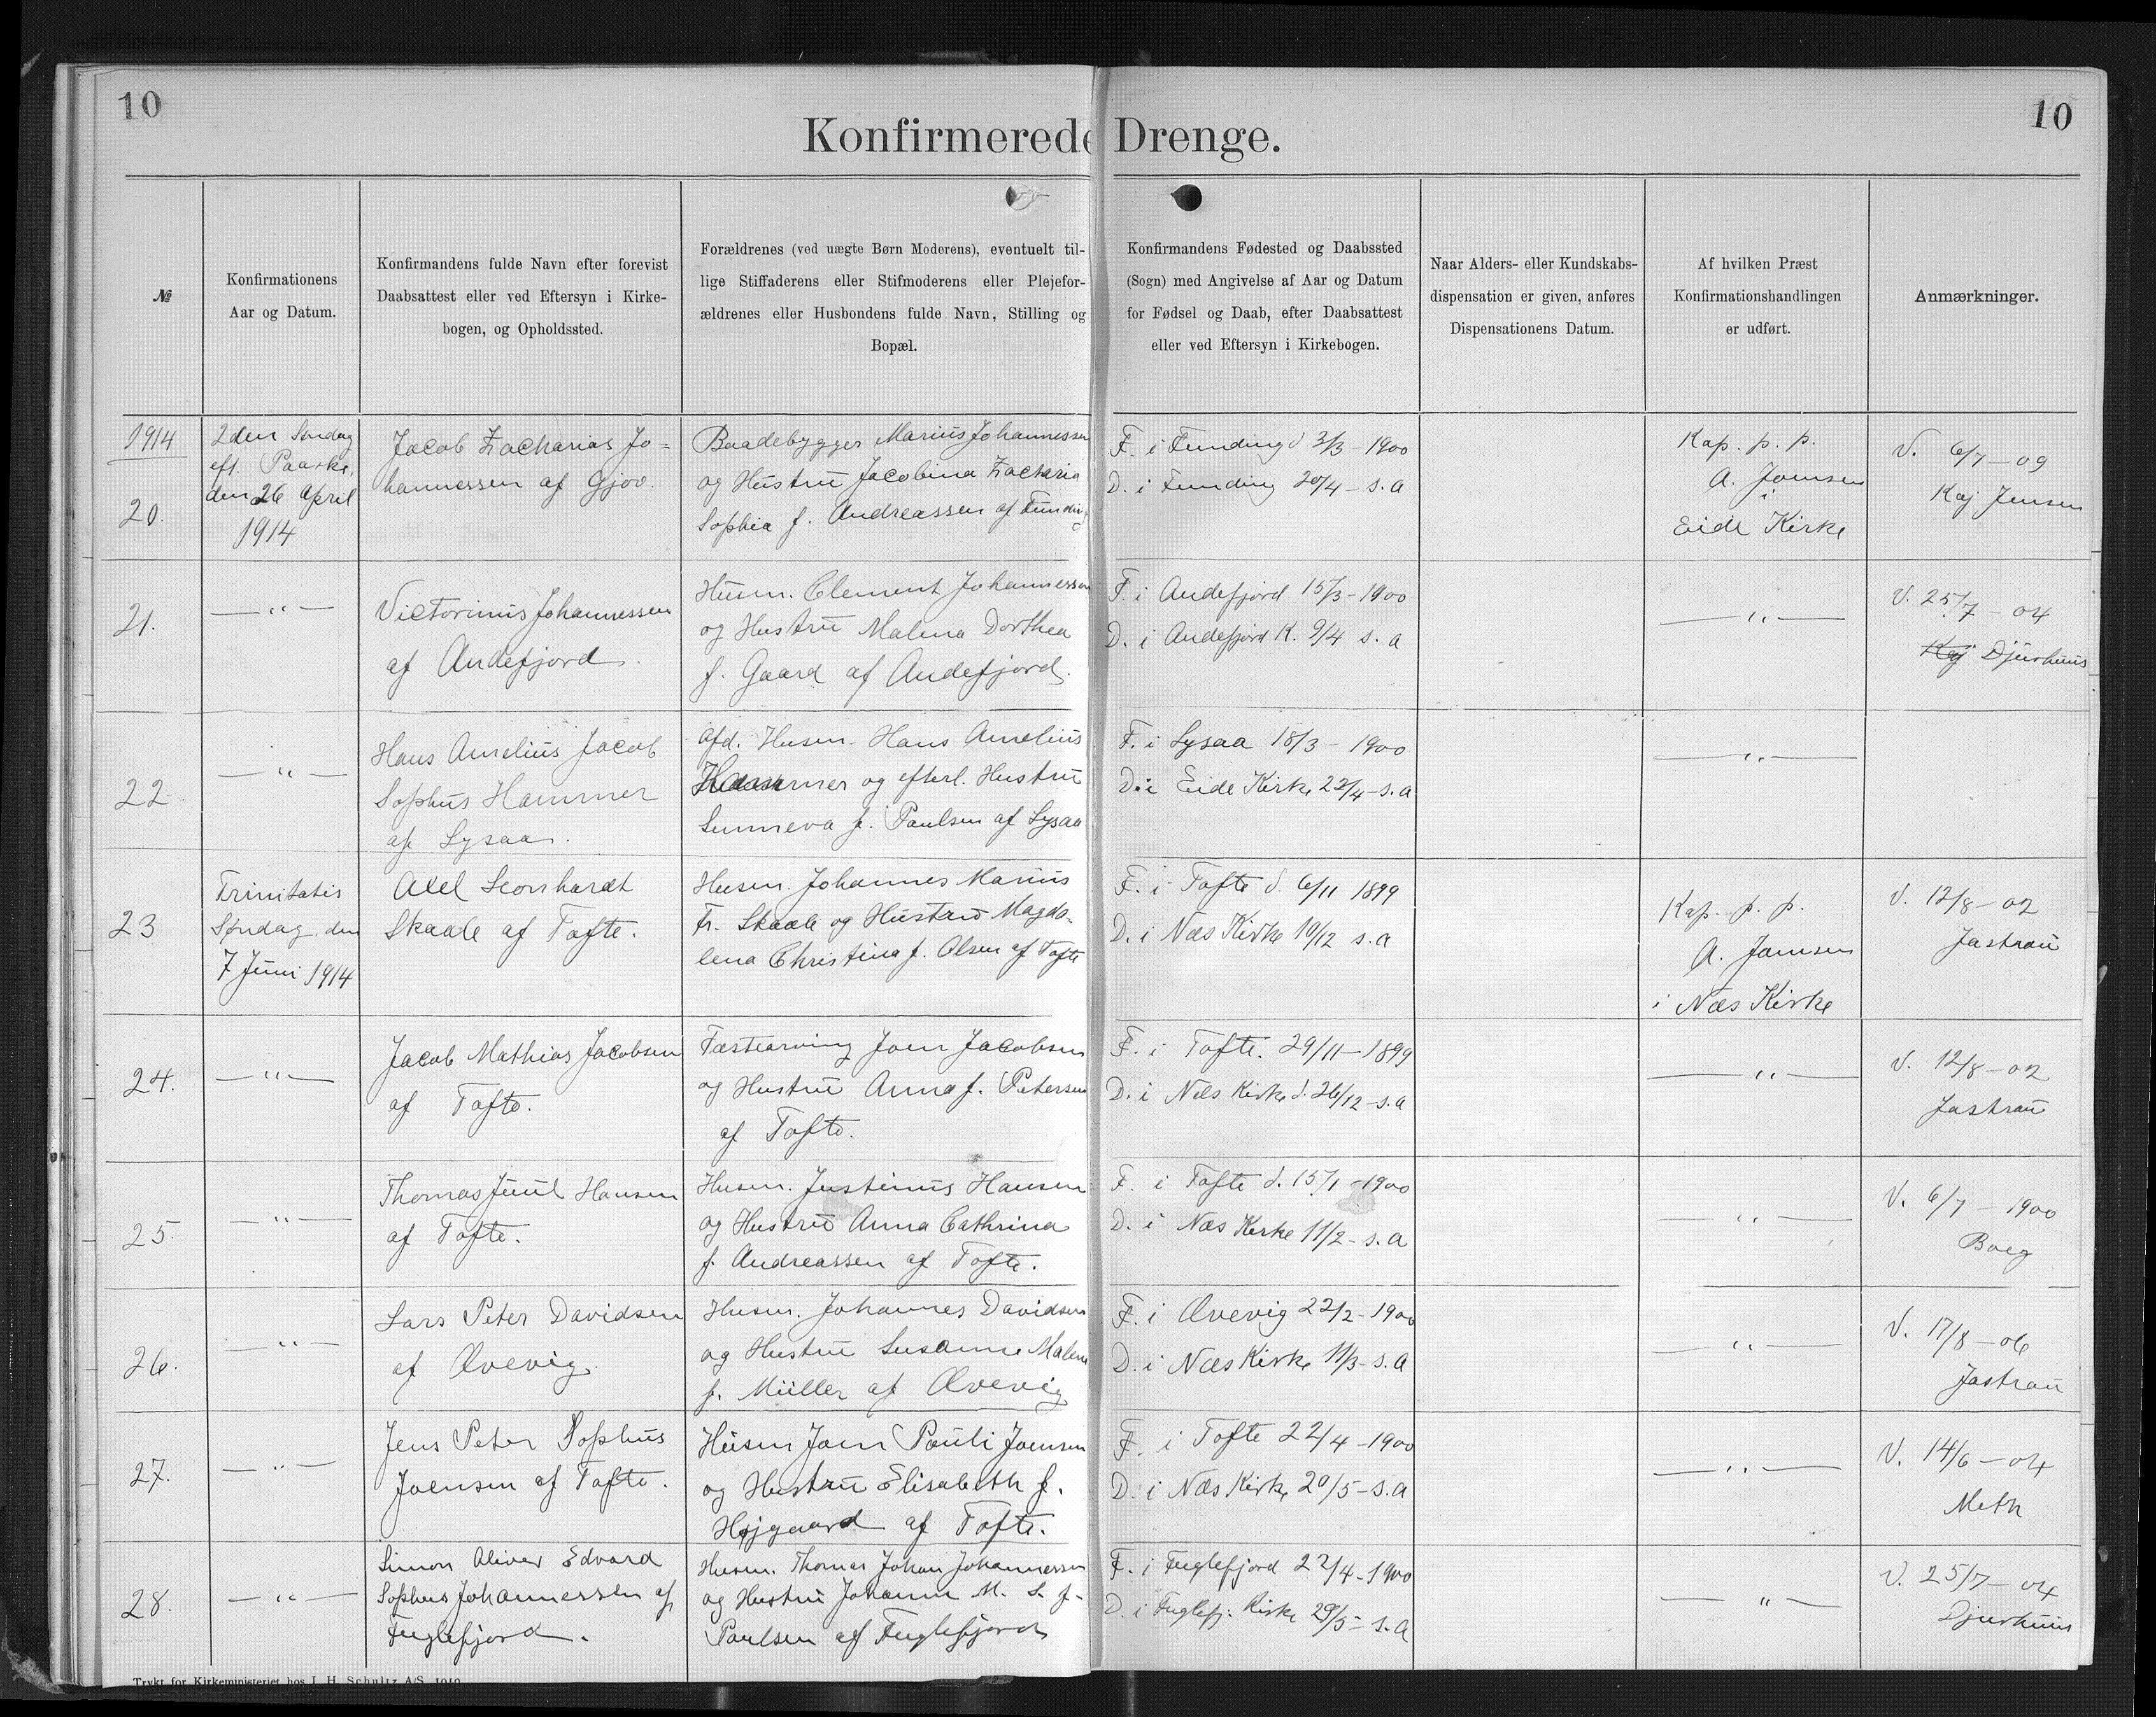 10
10
Konfirmerede Drenge.
№
Konfirmationens
Aar og Datum.
Konfirmandens fulde Navn efter forevist
Daabsattest eller ved Eftersyn i Kirke-
bogen, og Opholdssted.
Forældrenes (ved uægte Børn Moderens), eventuelt til-
lige Stiffaderens eller Stifmoderens eller Plejefor-
ældrenes eller Husbondens fulde Navn, Stilling og
Bopæl.
Konfirmandens Fødested og Daabssted
(Sogn) med Angivelse af Aar og Datum
for Fødsel og Daab, efter Daabsattest
eller ved Eftersyn i Kirkebogen.
Naar Alders- eller Kundskabs-
dispensation er given, anføres
Dispensationens Datum.
Af hvilken Præst
Konfirmationshandlingen
er udført.
Anmærkninger.
1914
20.
2den Søndag
eft. Paaske.
den 26 April
1914
Jacob Zacharias Jo-
hannessen af Gjov.
Baadebygger Marius Johannessen
og Hustru Jacobina Zacharia
Sophia f. Andreassen af Funding
F. i Funding d 3/3 - 1900
D. i Funding 20/4 - s. a
Kap. p. p.
A. Joensen
i
Eide Kirke
V. 6/7 - 09
Kaj Jensen
21.
— " —
Victorinus Johannessen
af Andefjord.
Husm. Clement Johannessen
og Hustru Malena Dorthea
f. Gaard af Andefjord.
F. i Andefjord 15/3 - 1900
D. i Andefjord K. 9/4 s. a
— " —
V. 25/7 - 04
Kaj Djurhuus
22.
— " —
Hans Aurelius Jacob
Sophus Hammer
af Lysaa.
Afd. Husm. Hans Aurelius
Hammer og efterl. Hustru
Sunneva f. Paulsen af Lysaa
F. i Lysaa 18/3 - 1900
D. i Eide Kirke 22/4 - s. a
— " —
23
Trinitatis
Søndag den
7 Juni 1914
Axel Leonhardt
Skaale af Tofte.
Husm. Johannes Marius
Fr. Skaale og Hustru Magda-
lena Christina f. Olsen af Tofte
F. i Tofte d. 6/11 1899
D. i Næs Kirke 10/12 s. a
Kap. p. p.
A. Joensen
i Næs Kirke
V. 12/8 - 02
Jastrau
24.
— " —
Jacob Mathias Jacobsen
af Tofte.
Fæstearving Joen Jacobsen
og Hustru Anna f. Petersen
af Tofte.
F. i Tofte. 29/11 - 1899
D. i Næs Kirke d. 26/12 - s. a
— " —
V. 12/8 - 02
Jastrau
25.
— " —
Thomas Juul Hansen
af Tofte.
Husm. Justinus Hansen
og Hustru Anna Cathrina
f. Andreassen af Tofte.
F. i Tofte d. 15/1 - 1900
D. i Næs Kirke 11/2 - s. a
— " —
V. 6/7 - 1900
Boeg
26.
— " —
Lars Peter Davidsen
af Ævevig.
Husm. Johannes Davidsen
og Hustru Susanne Malene
f. Müller af Ævevig
F. i Ævevig 22/2 - 1900
D. i Næs Kirke 11/3 - s. a
— " —
V. 17/8 - 06
Jastrau
27.
— " —
Jens Peter Sophus
Joensen af Tofte.
Husm Joen Pauli Joensen
og Hustru Elisabeth f.
Højgaard af Tofte.
F. i Tofte 22/4 - 1900
D. i Næs Kirke 20/5 - s. a
— " —
V. 14/6 - 04
Meth
28.
— " —
Simon Oliver Edvard
Sophus Johannessen af
Fuglefjord.
Husm. Thomas Johan Johannessen
og Hustru Johanne M. S. f.
Poulsen af Fuglefjord
F. i Fuglefjord 22/4 - 1900
D. i Fuglefj: Kirke 29/5 - s. a
— " —
V. 25/7 - 04
Djurhuus
Trykt for Kirkeministeriet hos J. H. Schultz A/S.